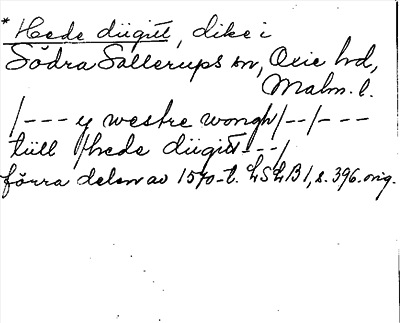 * Hede diigit, dike i
Södra Sallerups sn, Oxie hd,
Malm. l.
/--- y westre wongh/--/---
tiill /hede diigit---/
förra delen av 1570-t. LSLB 1, s. 396. orig.